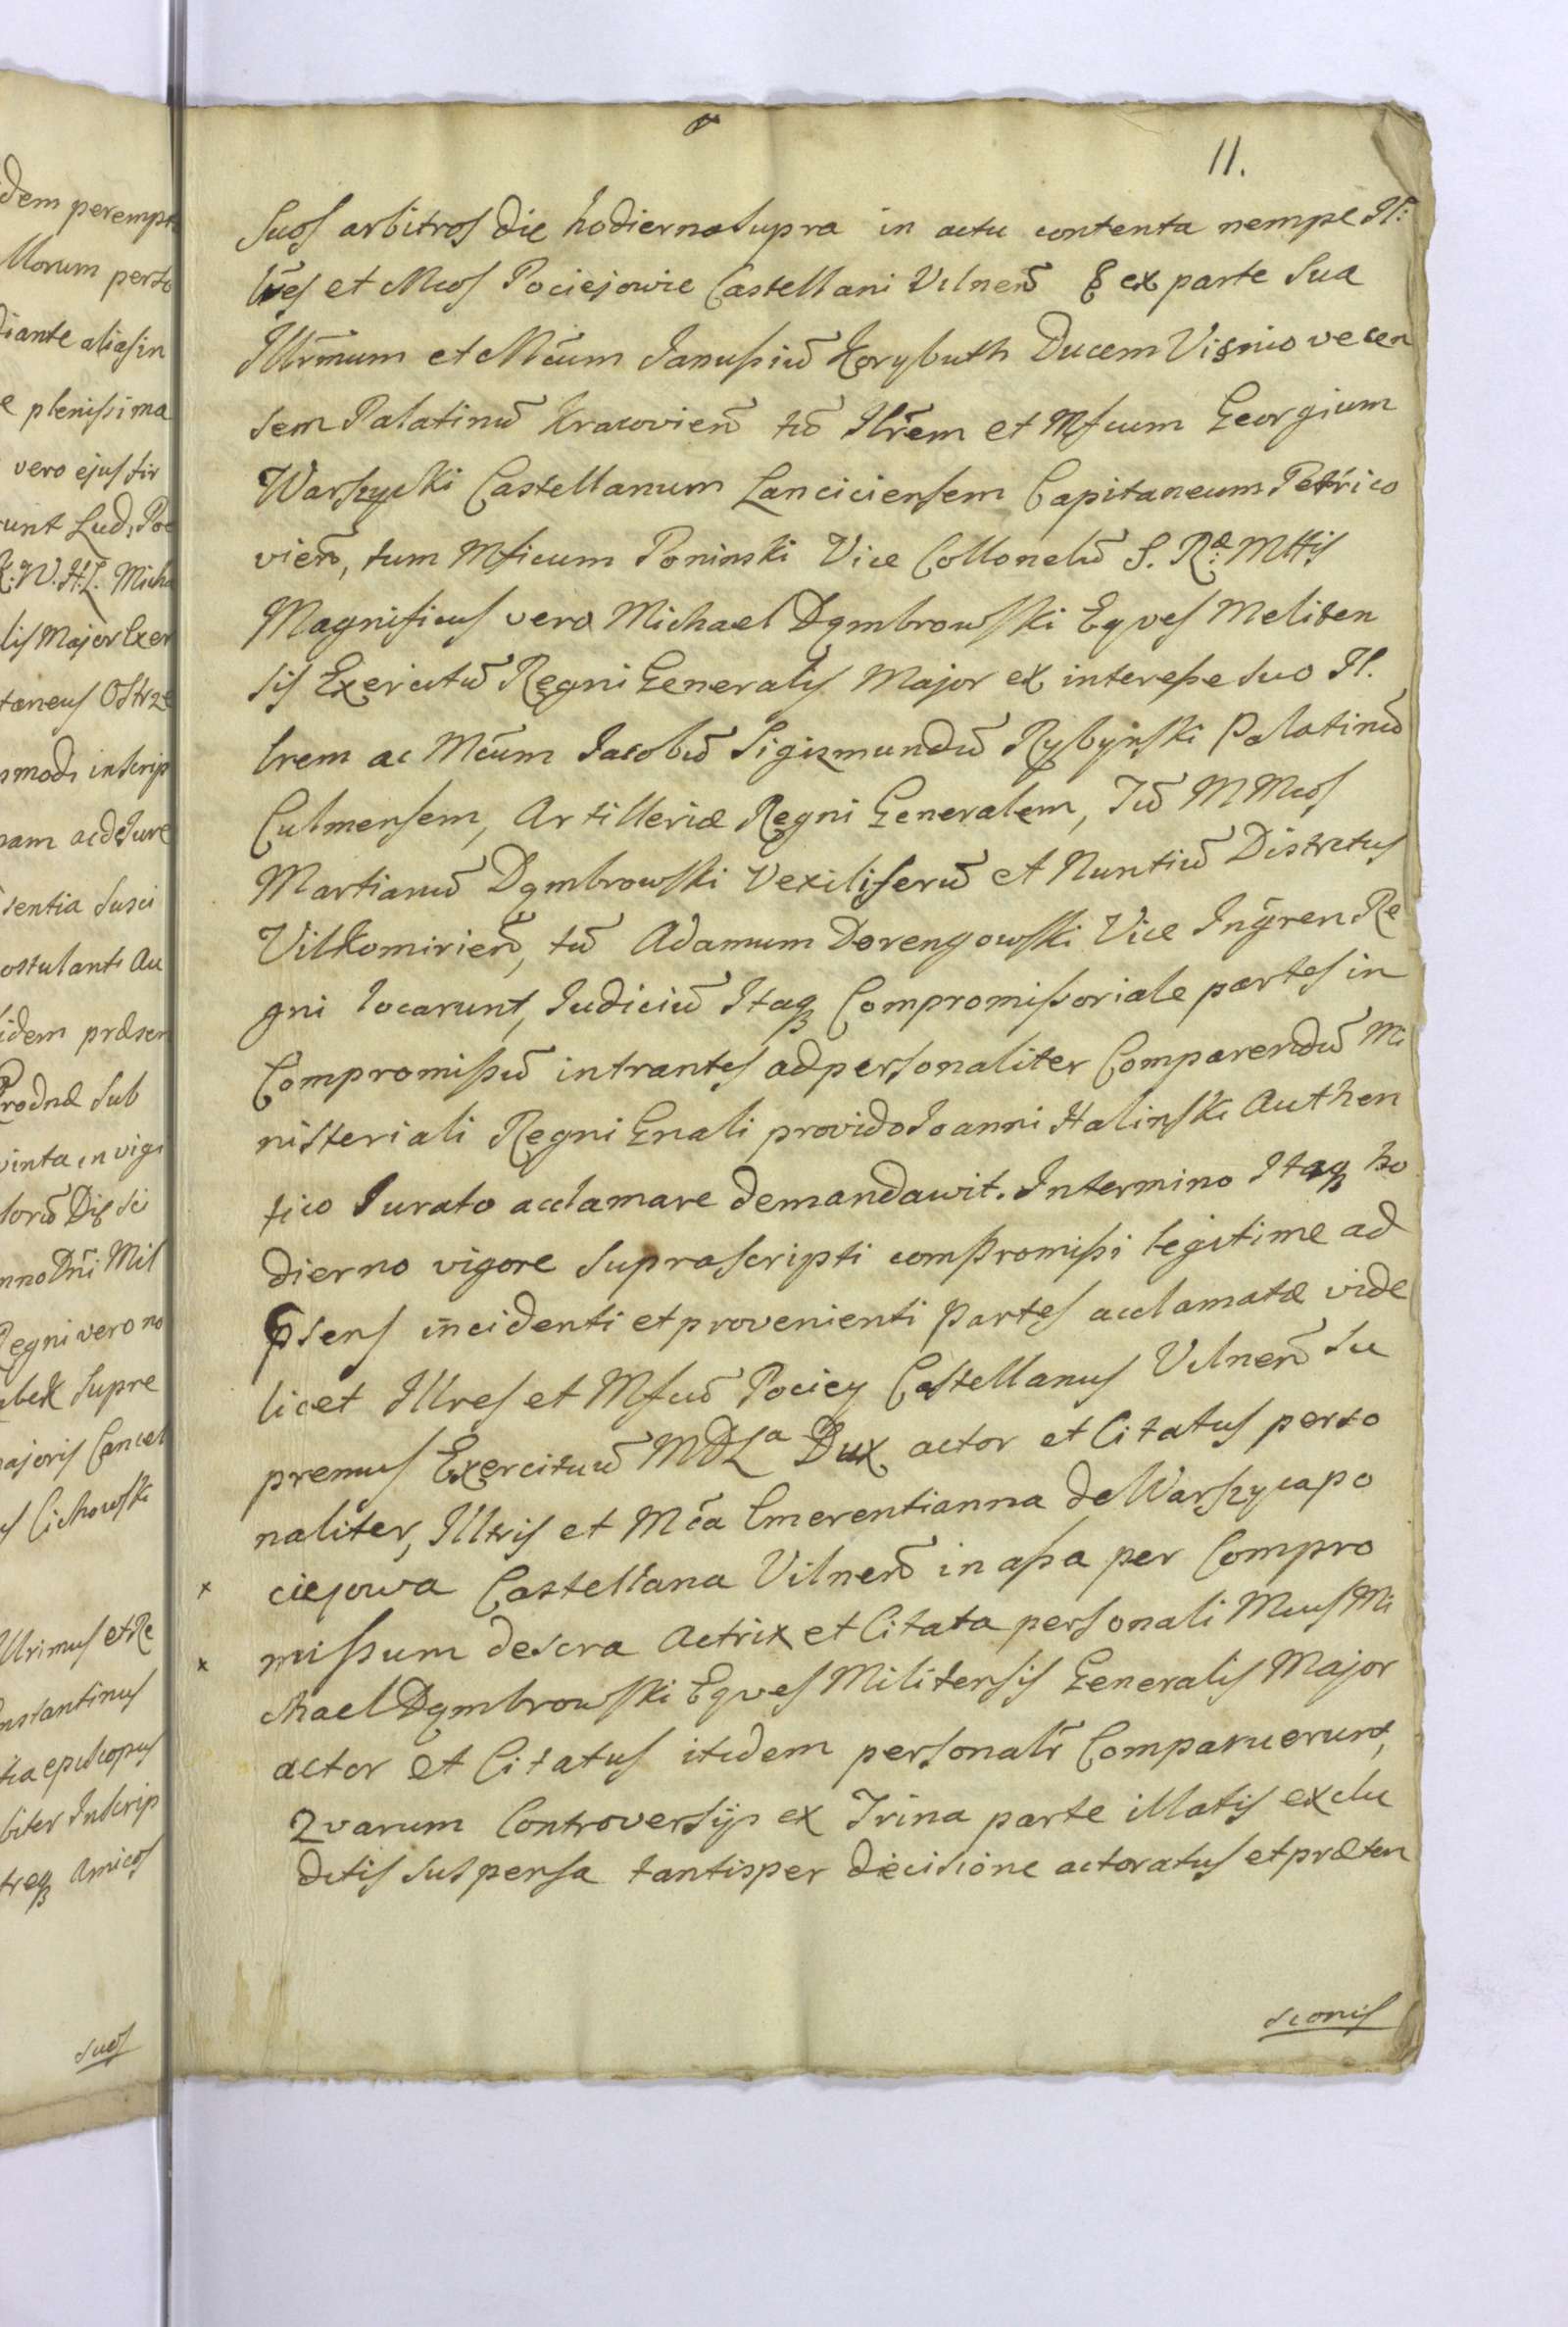 11.
Suos arbitros die hodierna supra in actu contenta nempe Il:
lres et Mcos Pociejowie Castellani Vilneñ & ex parte sua
Illrmum et Mcum Janussiū Korybuth Ducem Visniovecen
sem Palatinū Kracovieñ tū Illrem et Mfcum Georgium
Warszycki Castellanum Lanciciensem Capitaneum Petrico
vieñ, tum Mficum Poninski Vice Collonelū S. Ræ: Mttis
Magnificus vero Michael Dąmbrowski Eqves Meliten
sis Exercitū Regni Generalis Major ex interesse suo Il.
lrem ac Mcum Jacobū Sigizmundū Rybynski Palatinū
Culmensem, Artilleriæ Regni Generalem, Tū MMcos
Martianū Dąmbrowski Vexiliferū et Nuntiū Distrctus
Vilkomirieñ, tū Adamum Dorengowski Vice Ingren Re
gni locarunt, Judiciū Itaq Compromissoriale partes in
Compromissū intrantes ad personaliter Comparendū Mi
nisteriali Regni Gnali provido Joanni Halinski Authen
tico Jurato acclamare demandawit. In termino Itaq ho
dierno vigore suprascripti compromissi legitime ad
psens incidenti et provenienti partes acclamatæ vide
licet Illres et Mfcū Pociey Castellanus Vilneñ Su
premus Exercituū MDLa Dux actor et Citatus perso
naliter, Illtris et Mca Emerentianna de Warszyca po
ciejowa Castellana Vilneñ in assa per Compro
missum descra Actrix et Citata personali Mcus Mi
chael Dąmbrowski Eqves Militensis Generalis Major
actor et Citatus itidem personalr Comparuerunt,
Qvarum Controversijs ex Trina parte illatis exclu
ditis suspensa tantisper diecisione actoratus et præten
sionis
dem perempt
llorum perso
diante alias in
e plenissima
vero ejus fir
runt Lud: Poc
R: W. H. L. Micha
lis Major Exer
taneus Ostrze
smodi inscrip
nam ac de Jure
sentia susci
ostulanti Au
idem præsen
Grodnæ sub
vinta in vigi
lorū Dis ci
nno Dñi Mil
Regni vero no
mbek Supre
ajoris Cancel
s Cichowski
Illrimus et Re
nstantinus
tia episcopus
liter Inscrip
treq Amicos
suos